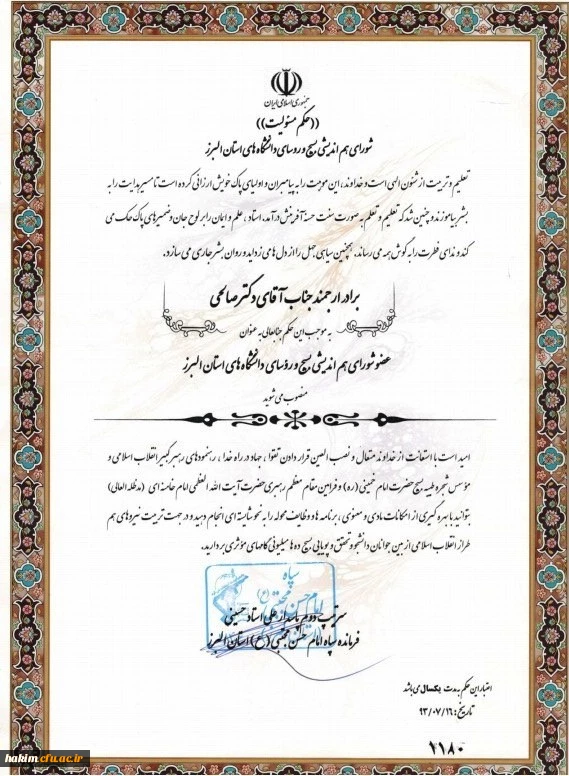 جمهوری اسلامی ایران
((حکم مسئولیت))
شورای هم اندیشی بسیج و روسای دانشگاه های استان البرز
تعلیم و تربیت از شئون الهی است و خداوند، این موهبت را به پیامبران و اولیای پاک خویش ارزانی کرده است تا مسیر هدایت را به
بشر بیاموزند و چنین شد که تعلیم و تعلم به صورت سنت حسنۀ آفرینش درآمد. استاد، علم و ایمان را بر لوح جان و ضمیرهای پاک حک می
کند و ندای فطرت را به گوش همه می رساند. همچنین سیاهی جهل را از دل ها می زداید و روان بشر جاری می سازد.
برادر ارجمند جناب آقای دکتر صالحی
به موجب این حکم جنابعالی به عنوان
عضو شورای هم اندیشی بسیج و رؤسای دانشگاه های استان البرز
منصوب می شوید
امید است با استعانت از خداوند متعال و نصب العین قرار دادن تقوا، جهاد در راه خدا، رهنمودهای رهبر کبیر انقلاب اسلامی و
مؤسس شجره طیبه بسیج حضرت امام خمینی (ره) و فرامین مقام معظم رهبری حضرت آیت الله العظمی امام خامنه ای (مدظله العالی)
بتوانید با بهره گیری از امکانات مادی و معنوی، برنامه ها و وظایف محوله را به نحو شایسته ای انجام دهید و در جهت تربیت نیروهای هم
طراز انقلاب اسلامی از بین جوانان دانشجو و تحقق و پویایی بسیج ده ها میلیونی گامهای مؤثری بردارید.
سپاه
امام حسن مجتبی (ع)
سرتیپ دوم پاسدار علی استاد حسینی
فرمانده سپاه امام حسن مجتبی (ع) استان البرز
اعتبار این حکم به مدت یکسال می باشد
تاریخ: ۹۳/۰۷/۱۶
۱۱۸۰
hakim.cfu.ac.ir